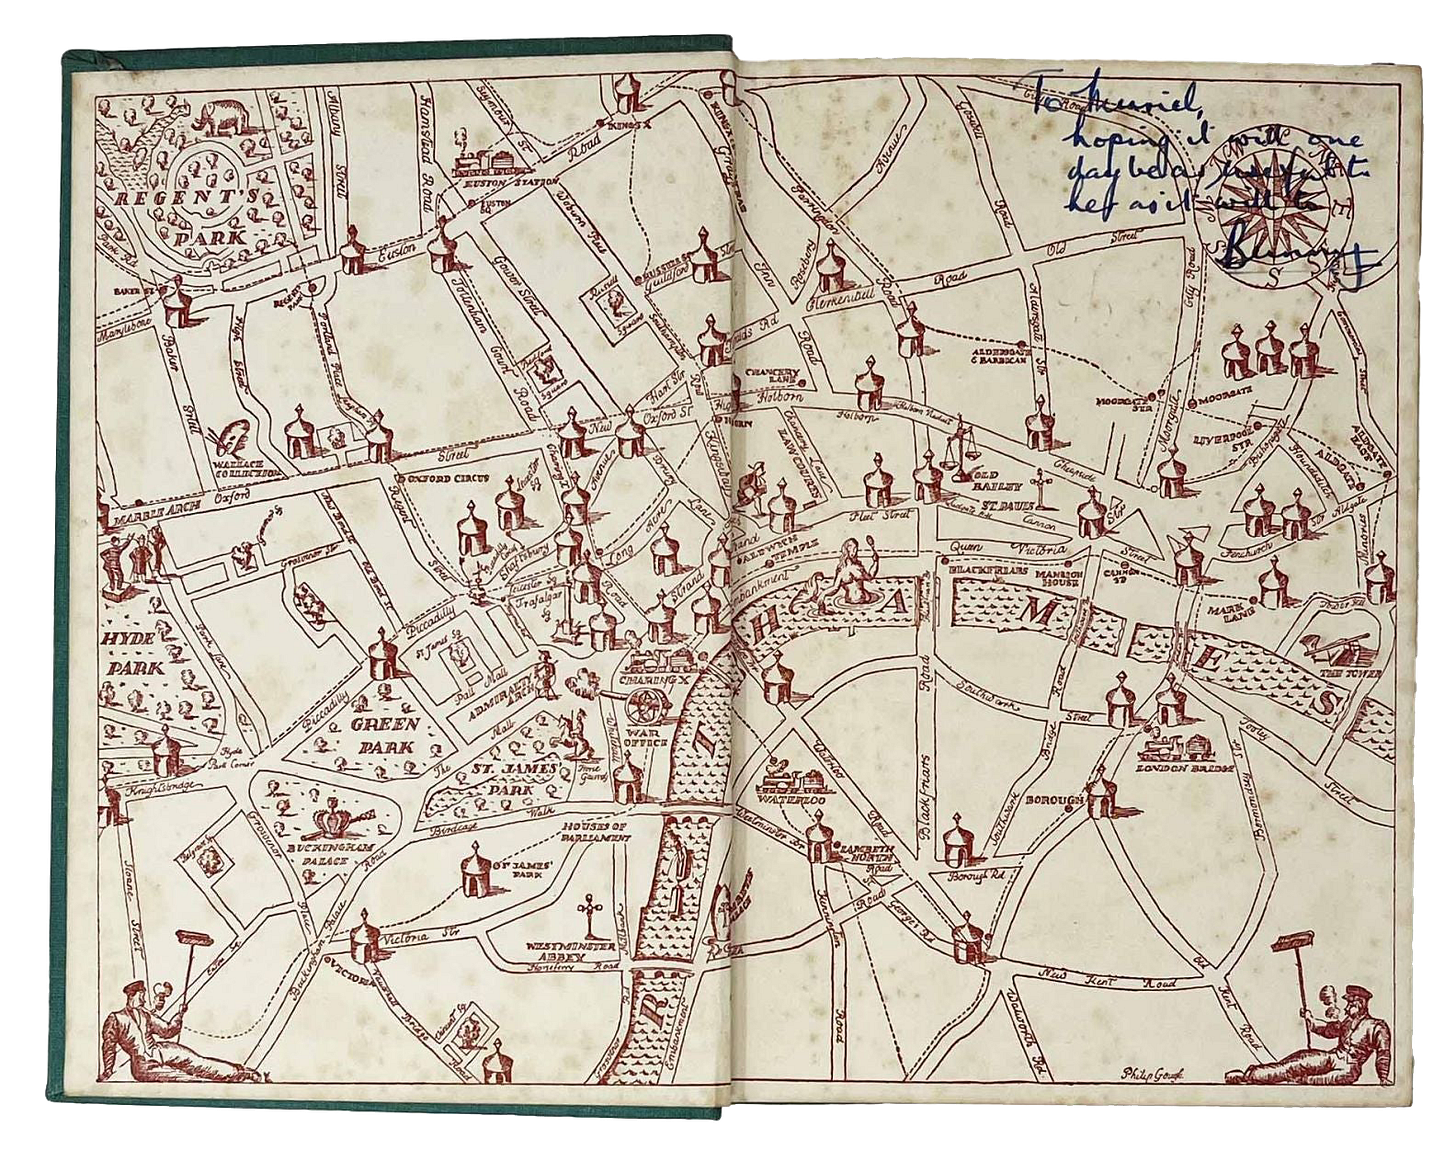 To Muriel,
hoping it will one
day be as useful to
her as it will to
Bunny
REGENT'S
PARK
Albany
Street
Hampstead
Road
Seymour
St
Road
KINGS X
EUSTON STATION
EUSTON
SQ
Euston
Woburn Place
BAKER ST
Marylebone
REGENTS
PARK
Portland Place
High
Baker
Street
Tottenham
Court
Road
Gower Street
Russell
Square
RUSSELL SQ
Guildford
Southampton
Bedford
Square
WALLACE
COLLECTION
MARBLE ARCH
Oxford
Street
New
Oxford St
Hart Str
OXFORD CIRCUS
Regent
Street
New Bond St
Grosvenor Str
Old Bond St
Park Lane
Piccadilly
St James Sq
Pall Mall
Leicester Sq
Trafalgar
Sq
Shaftesbury
Avenue
Charing X
Road
Long
Acre
Drury
Lane
Kingsway
Strand
HYDE
PARK
Piccadilly
GREEN
PARK
ADMIRALTY
ARCH
The
Mall
ST. JAMES'
PARK
Horse
Guards
Whitehall
CHARING X
WAR
OFFICE
Hyde
Park Corner
Knightsbridge
Grosvenor
Place
Belgrave Sq
BUCKINGHAM
PALACE
Birdcage
Walk
HOUSES OF
PARLIAMENT
ST JAMES'
PARK
Buckingham Palace
Road
Sloane
Street
Eaton Sq
Victoria Str
VICTORIA
WESTMINSTER
ABBEY
Horseferry Road
Millbank
Vauxhall
Bridge
Road
Vincent Sq
Embankment
Gosnell
Road
Farringdon
Road
Rosebery
Avenue
Clerkenwell
Road
Old
Street
City Road
ALDERSGATE
& BARBICAN
CHANCERY
LANE
Holborn
Holborn
Holborn Viaduct
Chancery Lane
LAW COURTS
OLD
BAILEY
ST PAULS
Cheapside
MOORGATE
STR
MOORGATE
Moorgate
LIVERPOOL
STR
Bishopsgate
Houndsditch
ALDGATE
ALDGATE
EAST
Commercial Street
Aldgate
Minories
Fenchurch
Str
Fleet Street
Ludgate Hill
Cannon
Str
ALDWYCH
TEMPLE
Embankment
Queen Victoria
Street
BLACKFRIARS
MANSION
HOUSE
CANNON
ST
MARK
LANE
Tower Hill
THE TOWER
THAMES
RI
Southwark
Street
Southwark
Bridge
Road
Blackfriars
Road
Waterloo
Road
WATERLOO
Westminster Br
LAMBETH
NORTH
Road
LONDON BRIDGE
BOROUGH
Tooley
Street
Bermondsey
Str
Borough Rd
St
Georges Rd
Kennington
Road
LAMBETH
PALACE
New Kent Road
Old
Kent
Road
Walworth
Rd
Philip Gough
S
E